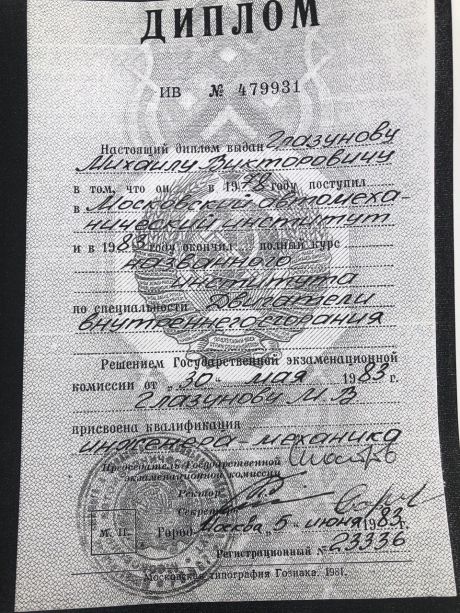 ДИПЛОМ
ИВ № 479931
Настоящий диплом выдан Глазунову
Михаилу Викторовичу
в том, что он в 1978 году поступил
в Московский автомеха-
нический институт
и в 1983 году окончил полный курс
названного
института
по специальности Двигатели
внутреннего сгорания
Решением Государственной экзаменационной
комиссии от „30“ мая 1983 г.
Глазунову М.В
присвоена квалификация
инженера-механика
Председатель Государственной
экзаменационной комиссии
Ректор
Секретарь
М. П. Город Москва „5“ июня 1983 г.
Регистрационный № 23336
Московская типография Гознака. 1981.